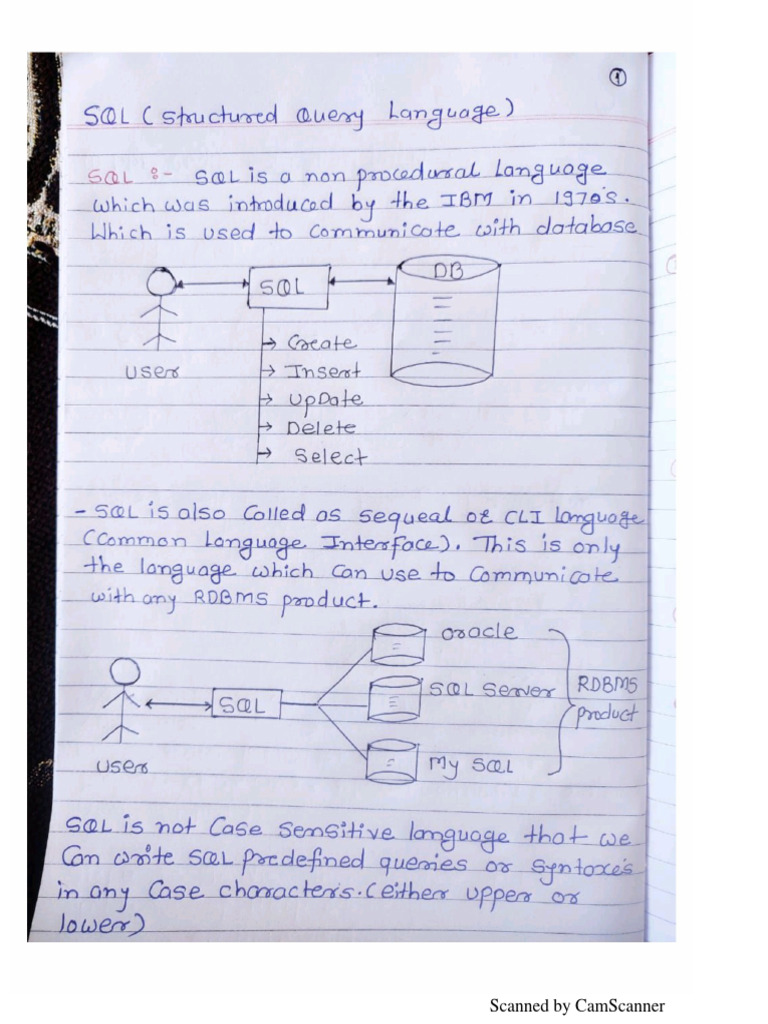 1
SQL (Structured Query Language)
SQL :- SQL is a non procedural language
which was introduced by the IBM in 1970's.
Which is used to communicate with database
DB
SQL
User
→ Create
→ Insert
→ UpDate
→ Delete
→ Select
- SQL is also called as sequeal or CLI language
(Common Language Interface). This is only
the language which can use to communicate
with any RDBMS product.
Oracle
SQL Server
My SQL
RDBMS
product
SQL
User
SQL is not case sensitive language that we
Can write SQL predefined queries or syntaxe's
in any case characters.(either upper or
lower)
Scanned by CamScanner